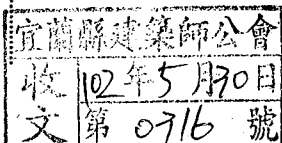 宜蘭縣建築師公會
收文
102年5月30日
第0316號